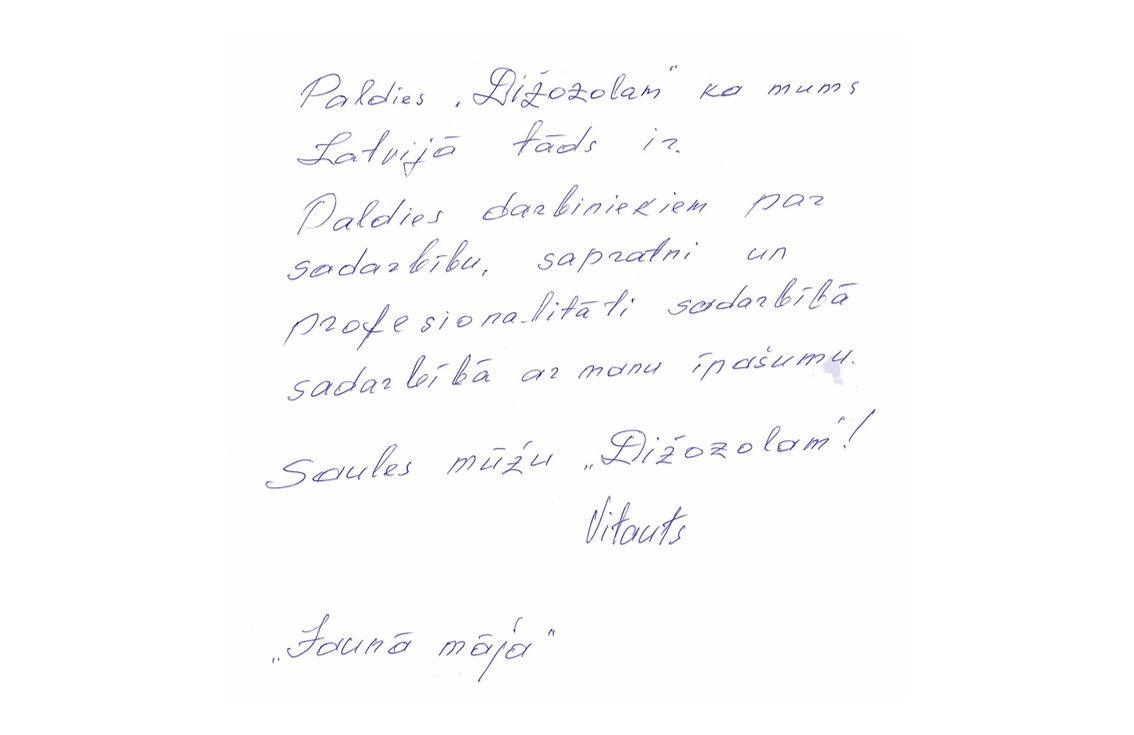 Paldies „Dižozolam" ka mums
Latvijā tāds ir.
Paldies darbiniekiem par
sadarbību, sapratni un
profesionalitāti sadarbībā
sadarbībā ar manu īpašumu.
Saules mūžu „Dižozolam"!
Vitauts
„Jaunā māja"